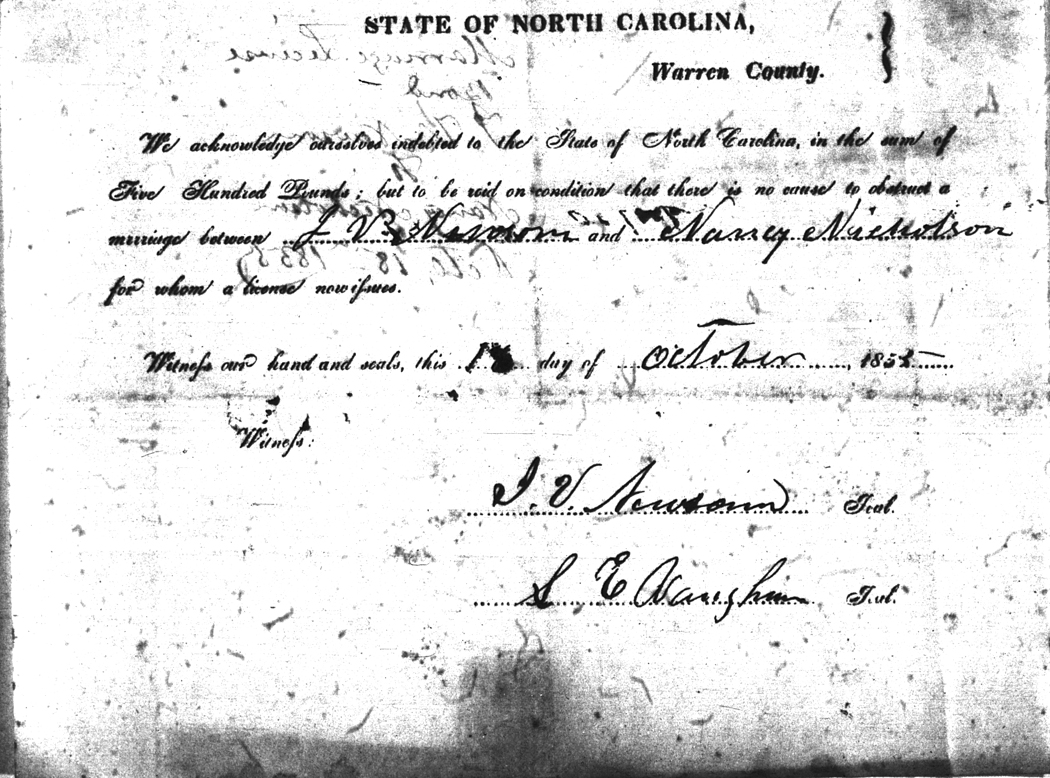 STATE OF NORTH CAROLINA,
Warren County.
We acknowledge ourselves indebted to the State of North Carolina, in the sum of
Five Hundred Pounds; but to be void on condition that there is no cause to obstruct a
marriage between J. V. Newsom and Nancy Nicholson
for whom a license now issues.
Witness our hand and seals, this day of October, 185
Witness:
J. V. Newsom Seal.
S E Vaughan Seal.